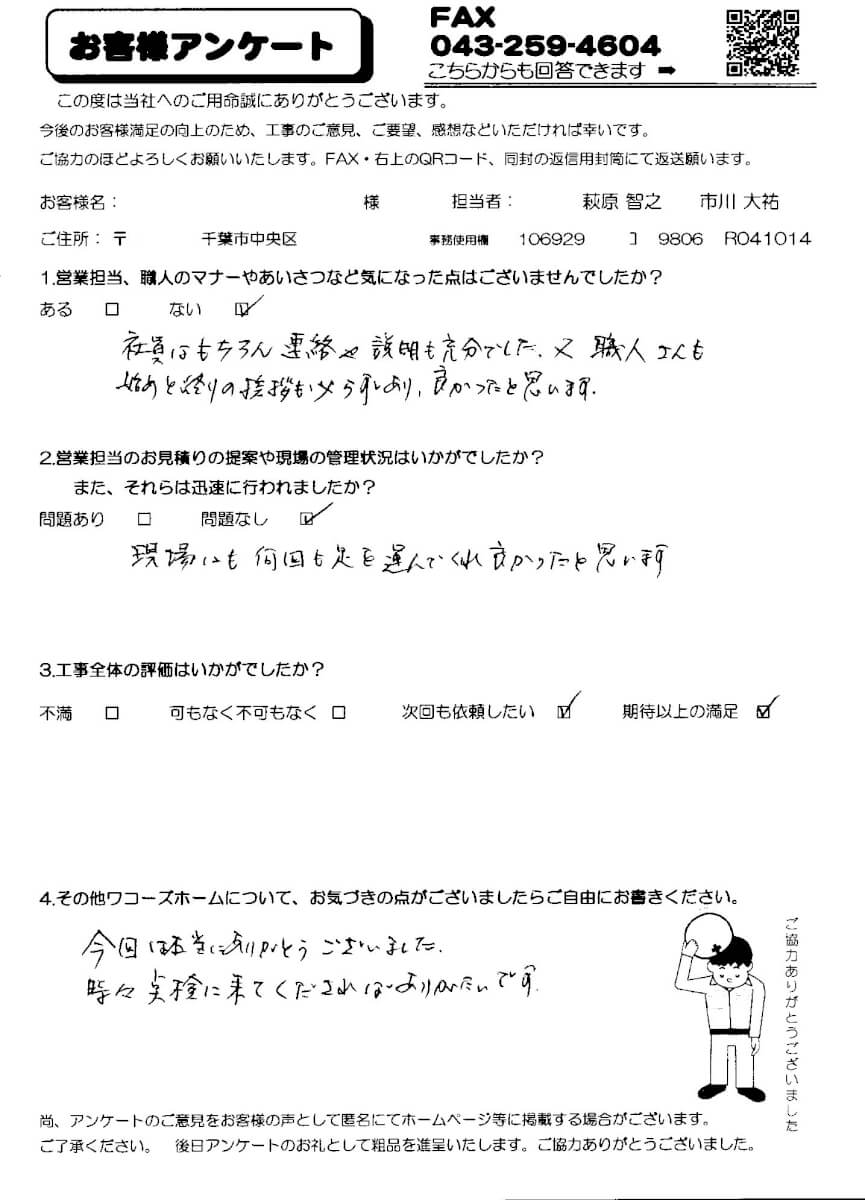 お客様アンケート
FAX
043-259-4604
こちらからも回答できます ➡
この度は当社へのご用命誠にありがとうございます。
今後のお客様満足の向上のため、工事のご意見、ご要望、感想などいただければ幸いです。
ご協力のほどよろしくお願いいたします。FAX・右上のQRコード、同封の返信用封筒にて返送願います。
お客様名： 様 担当者： 萩原 智之 市川 大祐
ご住所：〒 千葉市中央区 事務使用欄 106929 コ 9806 R041014
1.営業担当、職人のマナーやあいさつなど気になった点はございませんでしたか？
ある □ ない ☑
社員はもちろん 連絡や 説明も充分でした。又 職人さんも
始めと終りの挨拶も必らずあり、良かったと思います。
2.営業担当のお見積りの提案や現場の管理状況はいかがでしたか？
また、それらは迅速に行われましたか？
問題あり □ 問題なし ☑
現場にも 何回も足を運んでくれ良かったと思います
3.工事全体の評価はいかがでしたか？
不満 □ 可もなく不可もなく □ 次回も依頼したい ☑ 期待以上の満足 ☑
4.その他ワコーズホームについて、お気づきの点がございましたらご自由にお書きください。
今回は本当にありがとうございました。
時々点検に来てくださればありがたいです。
ご協力ありがとうございました
尚、アンケートのご意見をお客様の声として匿名にてホームページ等に掲載する場合がございます。
ご了承ください。 後日アンケートのお礼として粗品を進呈いたします。ご協力ありがとうございました。